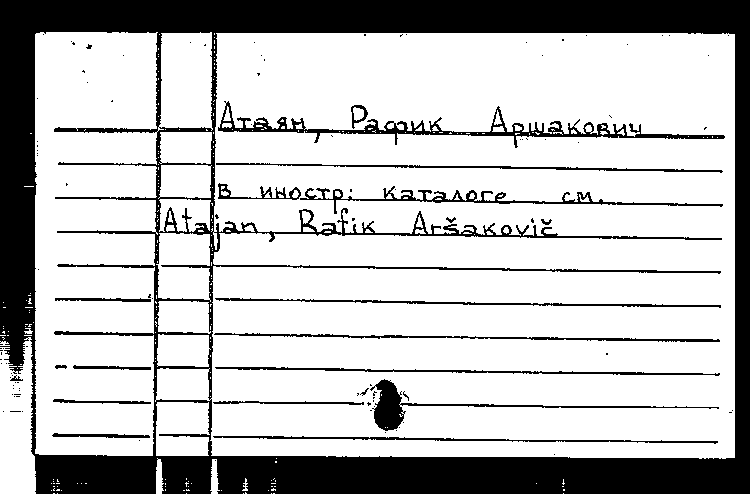 Атаян, Рафик Аршакович
В иностр: каталоге см.
Atajan, Rafik Aršakovič